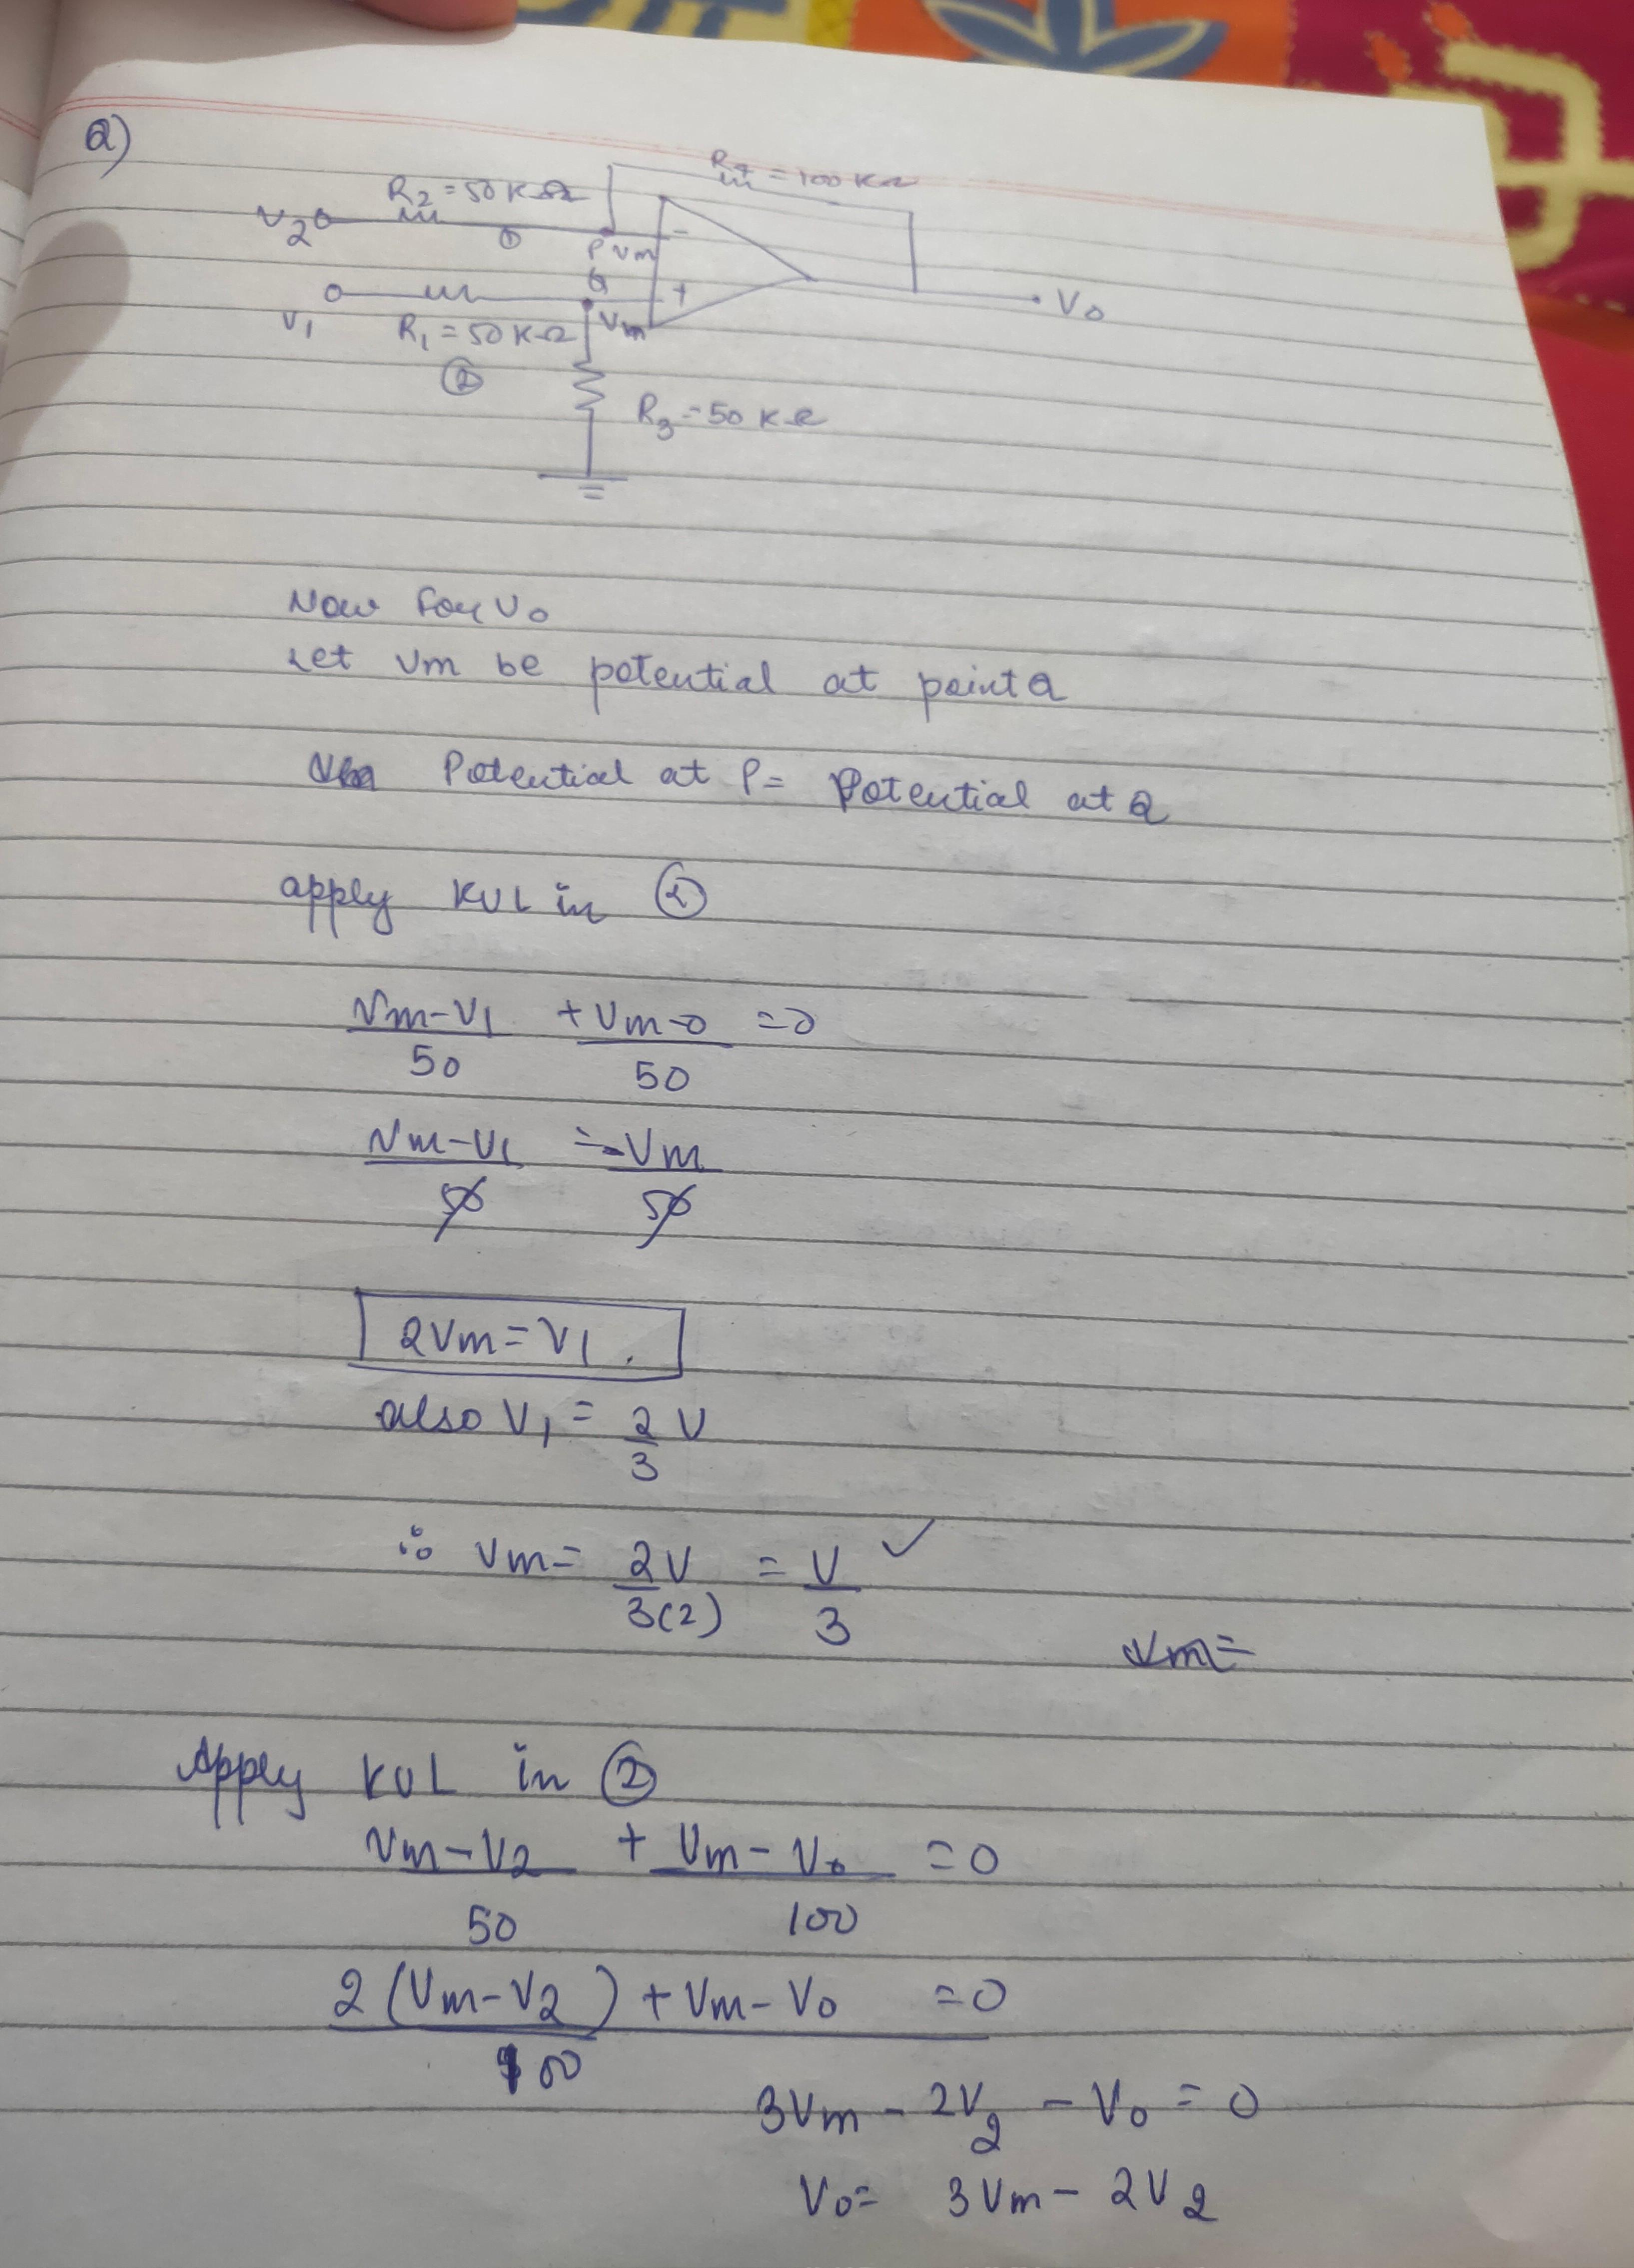 Q)
R₂ = 50 KΩ
R₄ = 100 KΩ
V₂
①
P Vm
-
Q
+
V₁
R₁ = 50 KΩ
Vm
V₀
②
R₃ = 50 KΩ
Now for V₀
Let Vm be potential at point Q
Potential at P = Potential at Q
apply KVL in ①
(Vm-V₁)/50 + (Vm-0)/50 = 0
(Vm-V₁)/50 = -Vm/50
2Vm = V₁.
also V₁ = 2/3 V
∴ Vm = 2V/3(2) = V/3 ✓
Vm =
Apply KVL in ②
(Vm-V₂)/50 + (Vm-V₀)/100 = 0
(2(Vm-V₂) + Vm-V₀)/100 = 0
3Vm - 2V₂ - V₀ = 0
V₀ = 3Vm - 2V₂